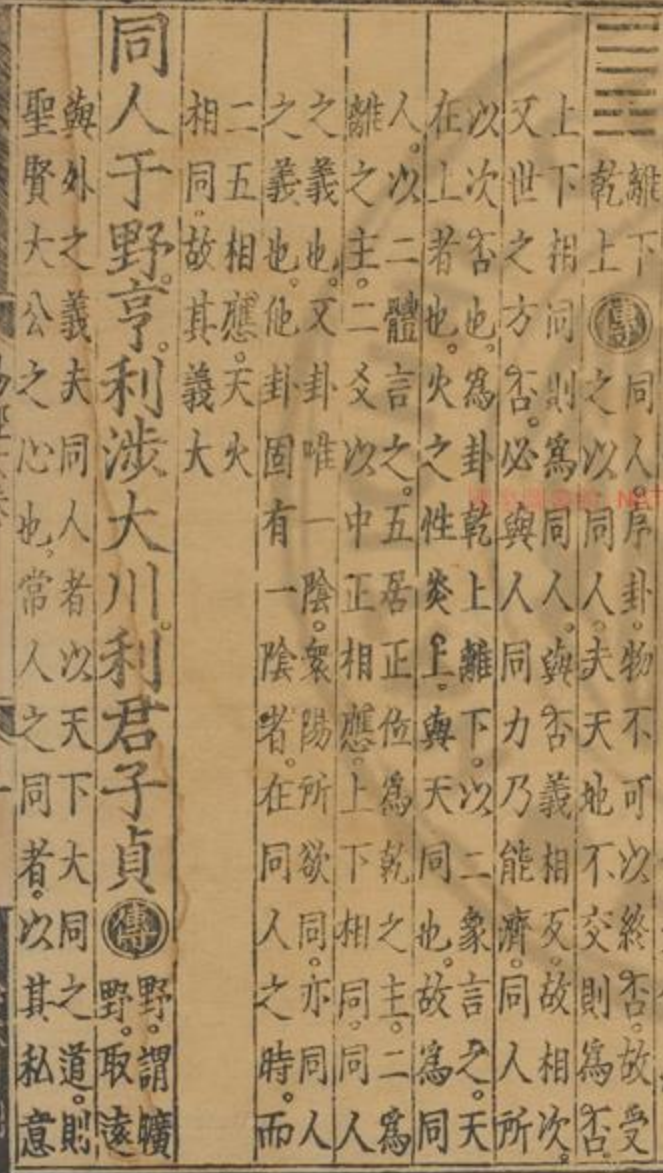 離下
乾上
傳
同人。序卦。物不可以終否。故受
之以同人。夫天地不交則為否。
上下相同則為同人。與否義相反。故相次。
又世之方否。必與人同力乃能濟。同人所
以次否也。為卦乾上離下。以二象言之。天
在上者也。火之性炎上。與天同也。故為同
人。以二體言之。五居正位為乾之主。二為
離之主。二爻以中正相應。上下相同。同人
之義也。又卦唯一陰。衆陽所欲同。亦同人
之義也。他卦固有一陰者。在同人之時。而
二五相應。天火
相同。故其義大
同人于野。亨。利涉大川。利君子貞
傳
野。謂曠
野。取遠
與外之義夫同人者以天下大同之道。則
聖賢大公之心也。常人之同者。以其私意